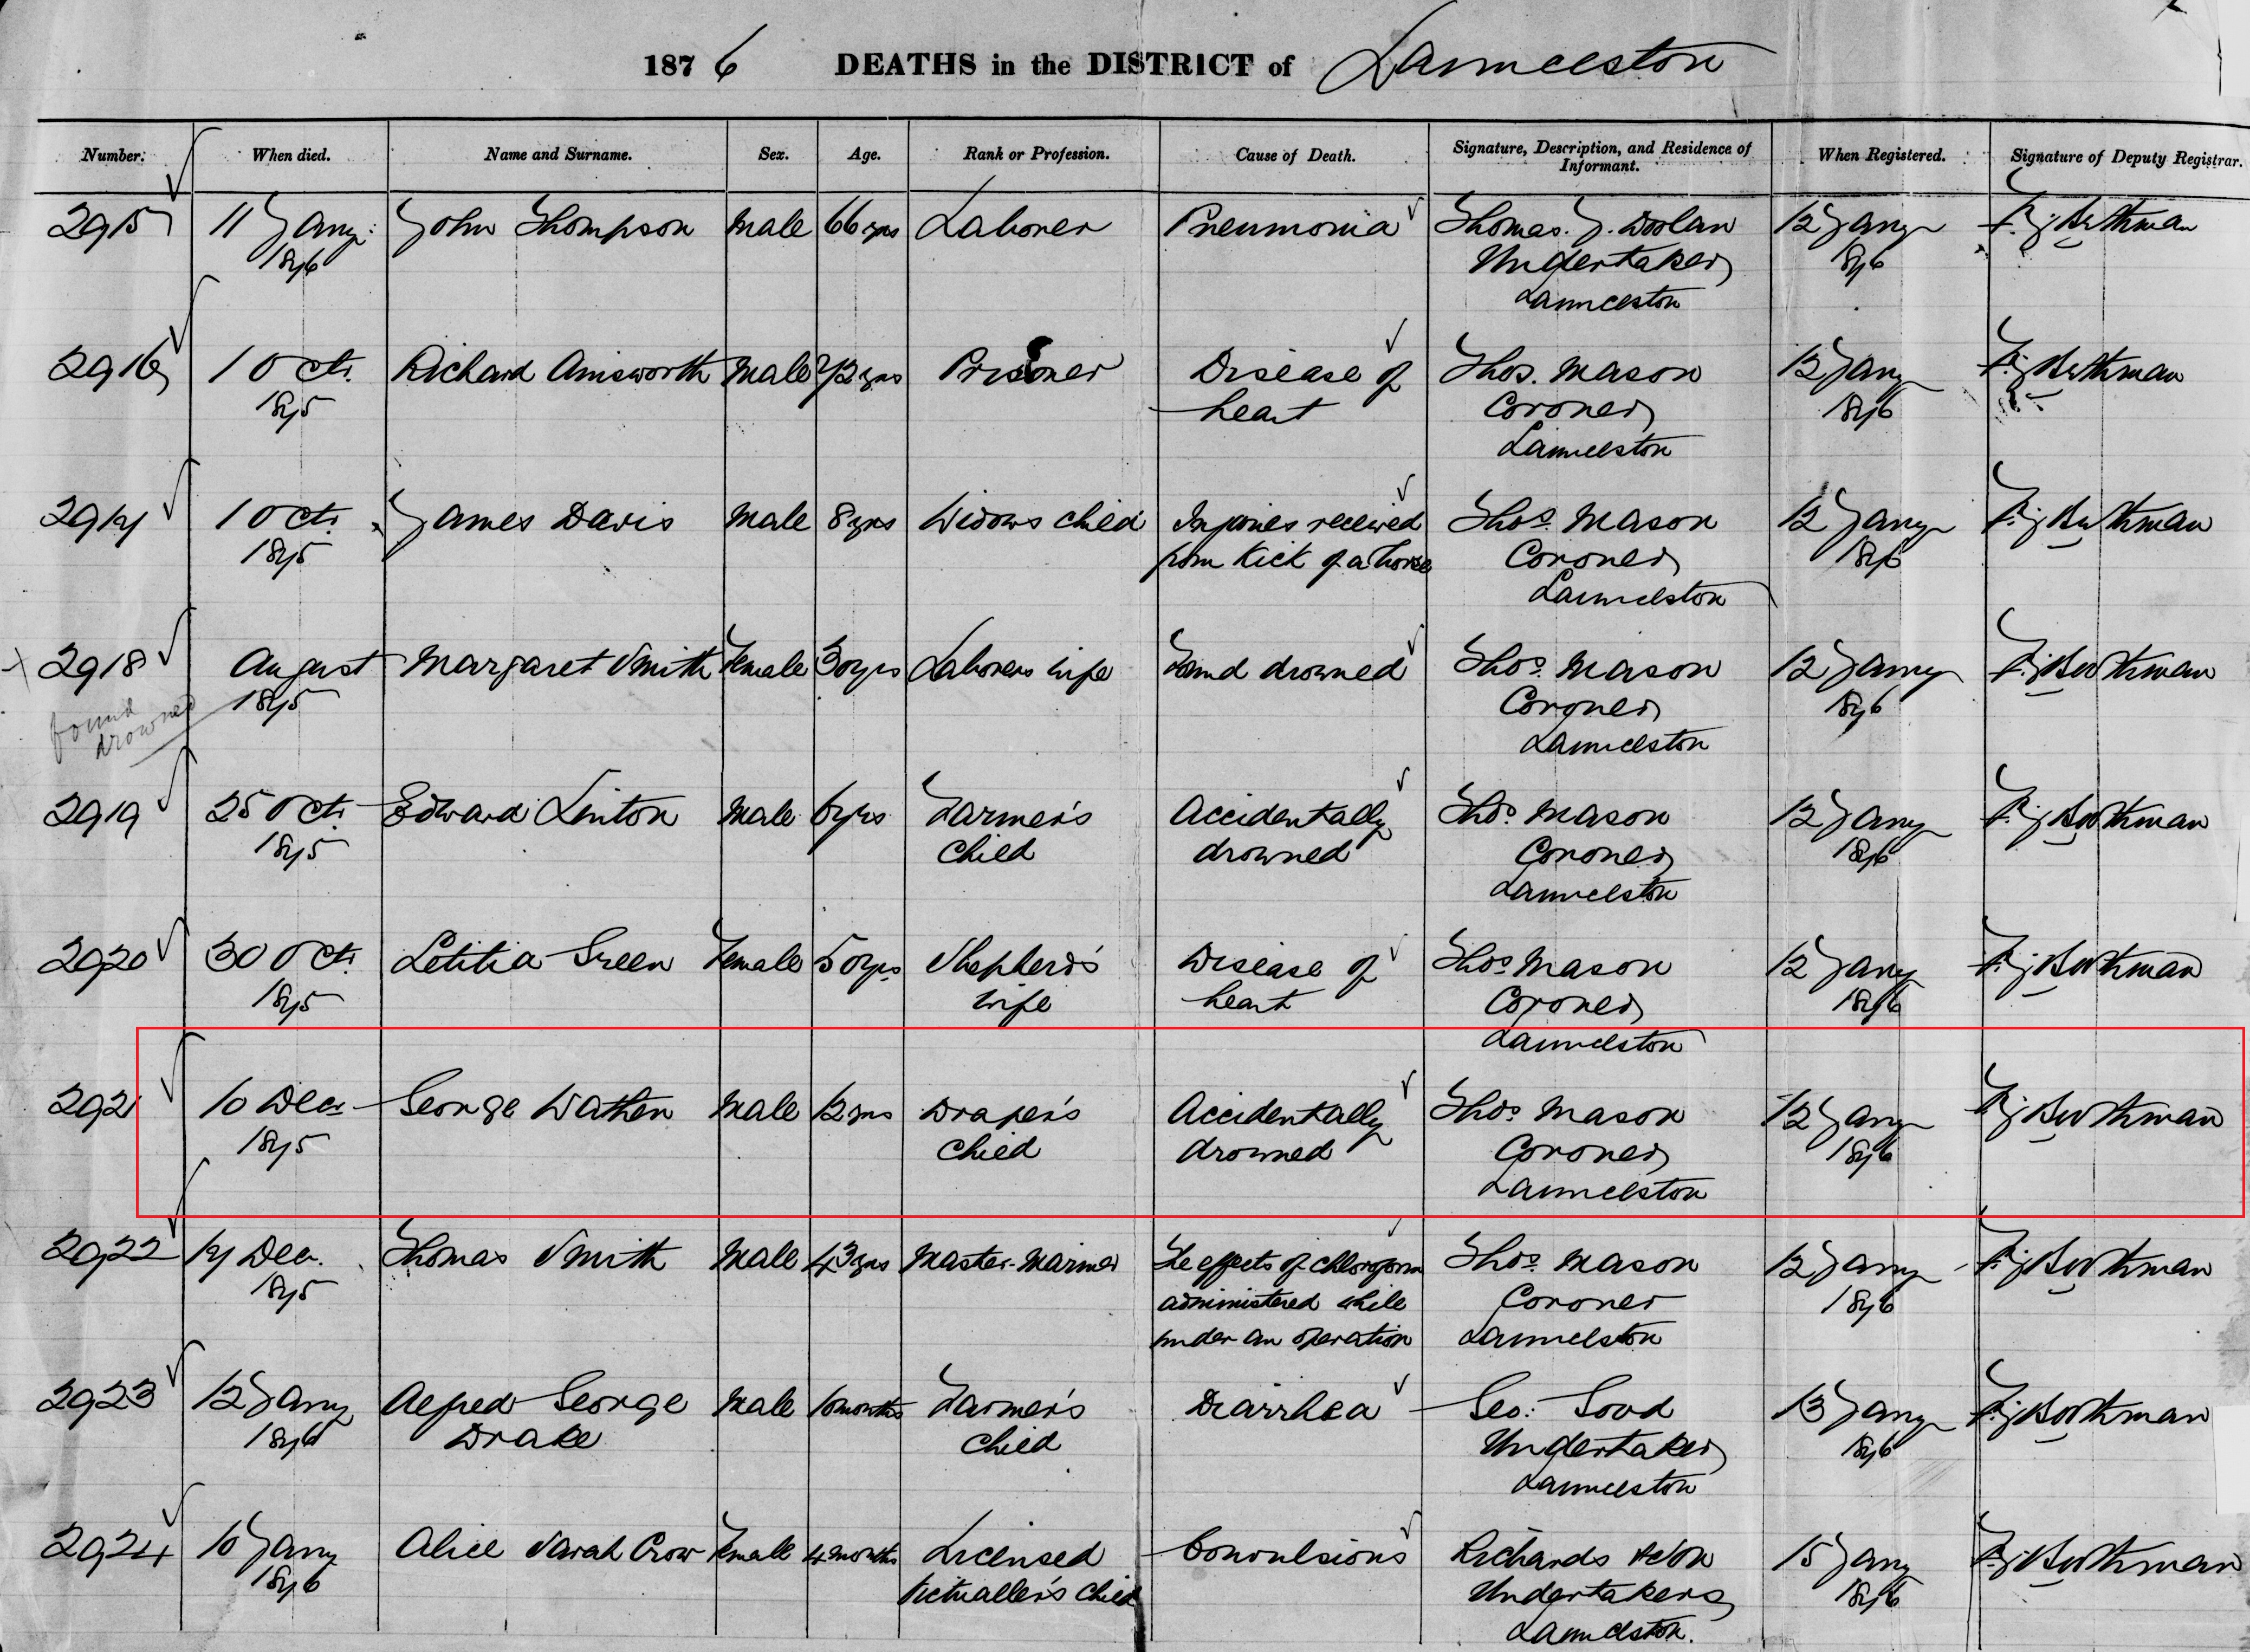 1876 DEATHS in the DISTRICT of Launceston
Number. When died. Name and Surname. Sex. Age. Rank or Profession. Cause of Death. Signature, Description, and Residence of Informant. When Registered. Signature of Deputy Registrar.
2915 11 Jany: John Thompson Male 66 yrs Laborer Pneumonia Thomas. J. Doolan 12 Jany
1876 Undertaker 1876
Launceston
2916 1 Oct. Richard Ainsworth Male 72 yrs Prisoner Disease of Thos. Mason 12 Jany
1875 heart Coroner 1876
Launceston
2917 1 Oct. James Davis Male 8 yrs Widows child Injuries received Thos. Mason 12 Jany
1875 from Kick of a horse Coroner 1876
Launceston
2918 August Margaret Smith Female 30 yrs Laborers wife Found drowned Thos. Mason 12 Jany
found drowned 1875 Coroner 1876
Launceston
2919 25 Oct. Edward Linton Male 6 yrs Farmer's Accidentally Thos. Mason 12 Jany
1875 child drowned Coroner 1876
Launceston
2920 30 Oct. Letitia Green Female 50 yrs Shepherd's Disease of Thos. Mason 12 Jany
1875 wife heart Coroner 1876
Launceston
2921 10 Dec. George Wathen Male 12 yrs Draper's Accidentally Thos. Mason 12 Jany
1875 child drowned Coroner 1876
Launceston
2922 17 Dec. Thomas Smith Male 43 yrs Master-Mariner The effects of chloroform Thos. Mason 12 Jany
1875 administered while Coroner 1876
under an operation Launceston
2923 12 Jany Alfred George Male 10 months Farmer's Diarrhea Geo: 13 Jany
1876 Drake child Undertaker 1876
Launceston
2924 10 Jany Alice Sarah Crow Female 4 months Licensed Convulsions Richards & Son 15 Jany
1876 Victualler's child Undertakers 1876
Launceston.